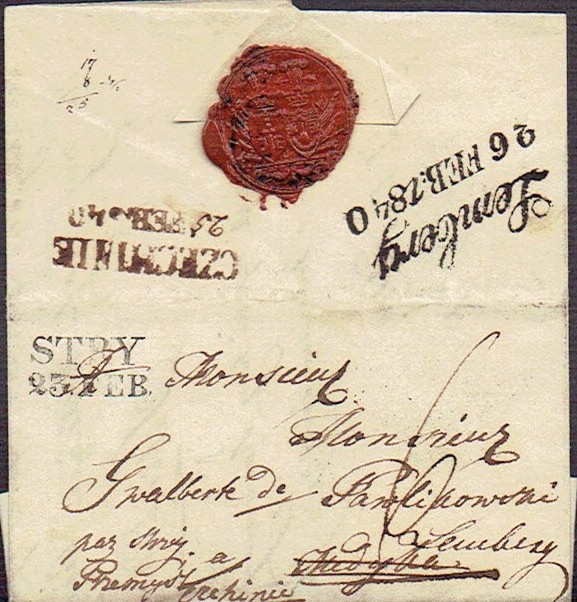 17
8
25
Lemberg
26 FEB. 1840
CZECHINIE
25 FEB. 840
STRY
23. FEB.
A Monsieur
Monsieur
Gwalberte de Pawlikowski
par Stryj a Lemberg
Przemysl